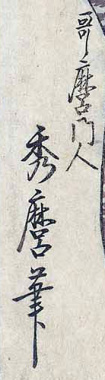 哥麿門人
秀麿筆